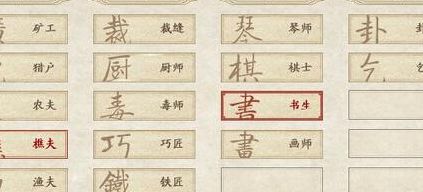 矿工
裁 裁缝
琴 琴师
卦
猎户
厨 厨师
棋 棋士
乞
农夫
毒 毒师
書 书生
樵夫
巧 巧匠
畫 画师
渔夫
鐵 铁匠